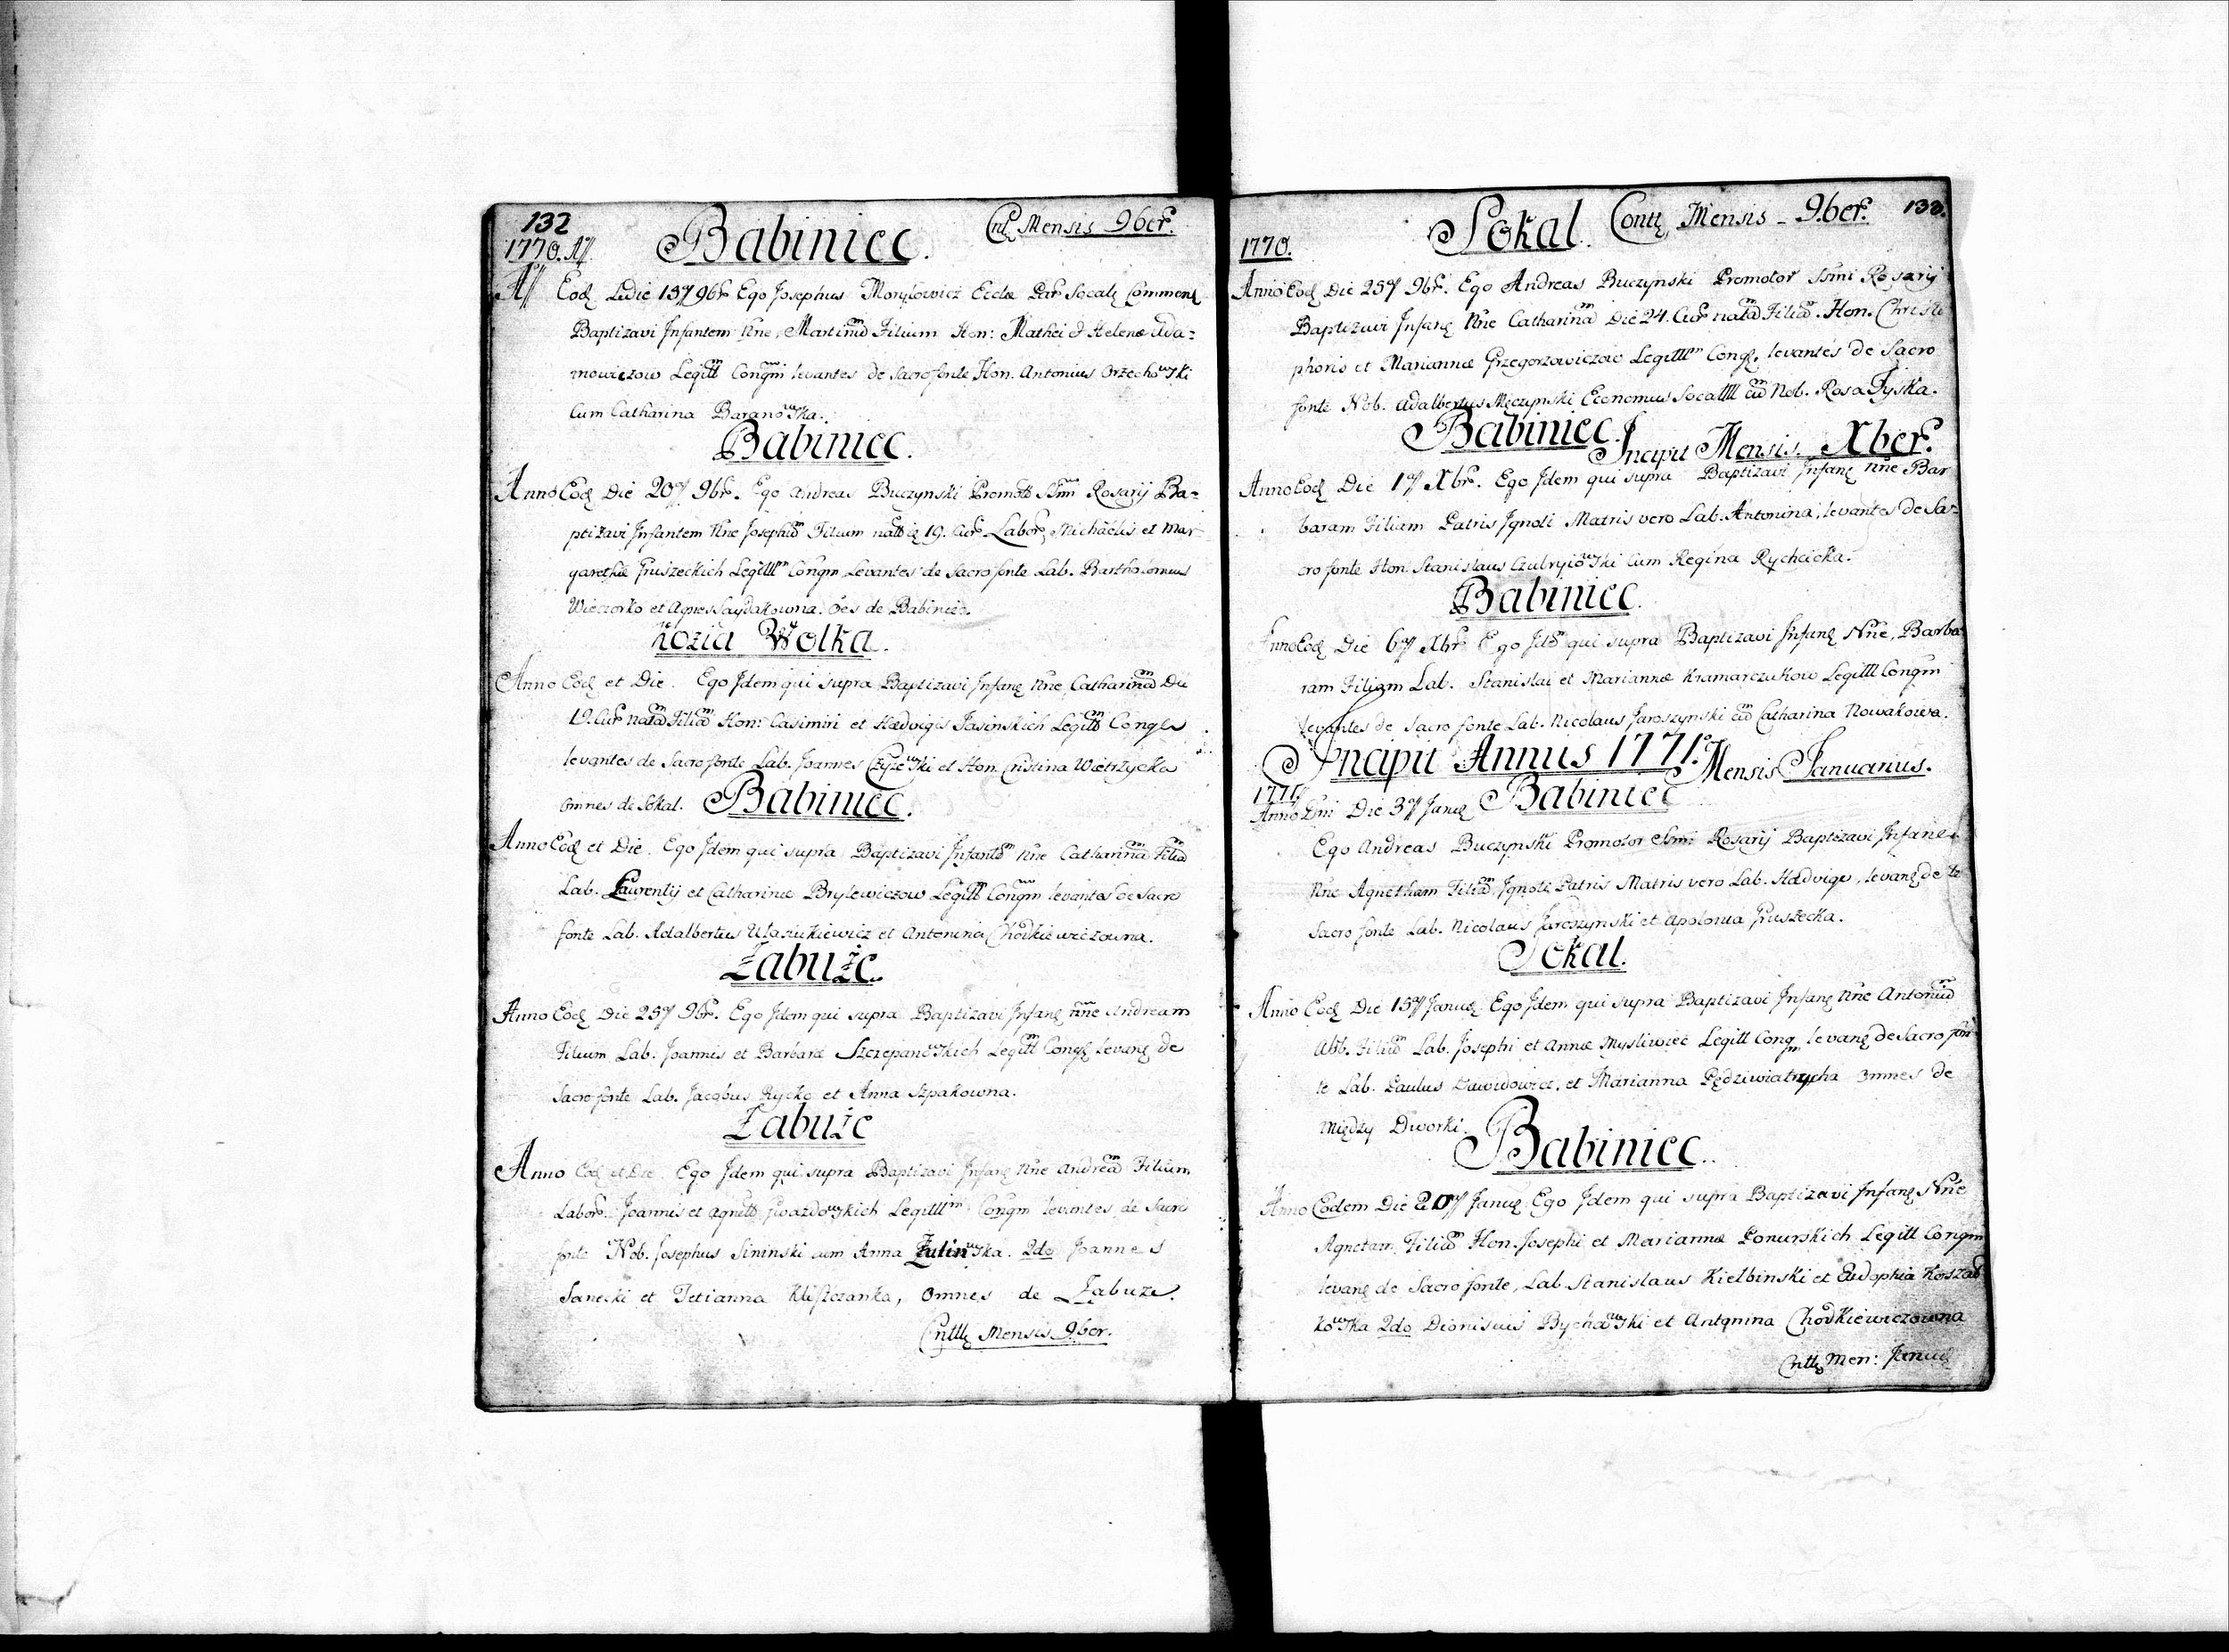 132
1770. Babiniec. Cnt. Mensis 9ber.
Eod Die 13 9br Ego Josephus Ecclae Par Socal Commend
Baptizavi Infantem Nne, Martinum Filium Hon: Mathei & Helenae Ada-
mowiczow Legitt Congm levantes de Sacro fonte Hon. Antonius Orzechowski
Cum Catharina Baranowska.
Babiniec.
Anno Eod Die 20 9br. Ego Andreas Buczynski Promott SSmi Rosarij Ba-
ptizavi Infantem Nne Josephum Filium 19. Cur Labor Michaelis et Mar
garethae Gruszeckich Legitt Congm Levantes de Sacro fonte Lab. Bartholomeus
Wieczorko et Agnes Saydakowna. Oes de Babiniec.
Kozia Wolka.
Anno Eod et Die. Ego Idem qui supra Baptizavi Infan Nne, Catharinam Die
19. Cur natam Filiam Hon: Casimiri et Haedvigis Jasinskich Legitt Congm
levantes de Sacro fonte Lab. Joannes Czyzewski et Hon. Cristina Wietrzycka
omnes de Sokal. Babiniec.
Anno Eod et Die. Ego Idem qui supra Baptizavi Infantem Nne Catharinam Filiam
Lab. Laurentij et Catharinae Brylewiczow Legitt Congm levantes de Sacro
fonte Lab. Adalbertus Ulasiukiewicz et Antonina Chodkiewiczowna.
Zabuże.
Anno Eod Die 25 9br. Ego Idem qui supra Baptizavi Infan Nne Andream
Filium Lab. Joannis et Barbarae Szczepanowskich Legitt Congm levan de
Sacro fonte Lab. Jacobus Rycko et Anna Szpakowna.
Zabuże
Anno Eod et Die. Ego Idem qui supra Baptizavi Infan Nne Andream Filium
Labor. Joannis et Agnetis Gwazdowskich Legitt Congm levantes de Sacro
fonte Nob. Josephus Sininski cum Anna Zulinska. 2do Joannes
Sanecki et Tetianna Kliszczanka, omnes de Zabuze.
Cnttt Mensis 9ber.
Sokal. Contt, Mensis - 9ber. 133.
1770.
Anno Eod Die 25 9br. Ego Andreas Buczynski Promotor SSmi Rosarij
Baptizavi Infan Nne Catharinam Die 24. Cur natam Filiam. Hon. Christo
phoris et Mariannae Grzegorzowiczow Legitt Cong, levantes de Sacro
fonte Nob. Adalbertus Męczynski Economus Socalll cum Nob. Rosa Tyska.
Babiniec. Incipit Mensis. Xber.
Anno Eod Die 1 Xbr. Ego Idem qui supra Baptizavi Infan Nne Bar
baram Filiam Patris Ignoti Matris vero Lab. Antonina, levantes de Sa-
cro fonte Hon. Stanislaus Czubryiowski Cum Regina Rychcicka.
Babiniec.
Anno Eod Die 6 Xbr Ego Idem qui supra Baptizavi Infan Nne, Barba
ram Filiam Lab. Stanislai et Mariannae Kramarczukow Legittt Congm
levantes de Sacro fonte Lab. Nicolaus Jaroszynski cum Catharina Nowakowa.
Incipit Annus 1771. Mensis Januarius.
1771.
Anno Dni Die 3 Janu Babiniec
Ego Andreas Buczynski Promotor SSmi Rosarij Baptizavi Infane
Nne Agnetham Filiam, Ignoti Patris Matris vero Lab. Haedvige, levan de
Sacro fonte Lab. Nicolaus Jaroszynski et Apolonia Gruszecka.
Sokal.
Anno Eod Die 15 Janu Ego Idem qui supra Baptizavi Infan Nne Antonium
Abb. Filium Lab. Josephi et Annae Mysliwiec Legitt Congm levan de Sacro fon
te Lab. Paulus Dawidowicz, et Marianna Pędziwiatrycha omnes de
między Dworki.
Babiniec.
Anno Eodem Die 20 Janu Ego Idem qui supra Baptizavi Infan Nne
Agnetam Filiam Hon. Josephi et Mariannae Ponurskich Legitt Congm
levan de Sacro fonte, Lab. Stanislaus Kielbinski et
kowska 2do Dionisius Bychowski et Antonina Chodkiewiczowna
Cnttt Men: Janu